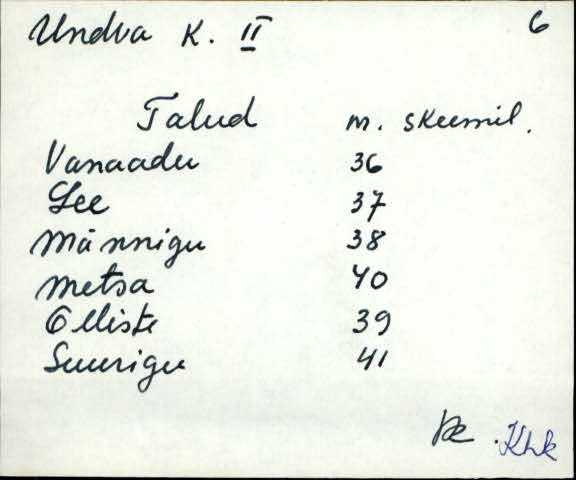 Undva K. II 6
Talud m. skeemil.
Vanaadu 36
Lee 37
Männigu 38
Metsa 40
Elliste 39
Suurigu 41
Khk